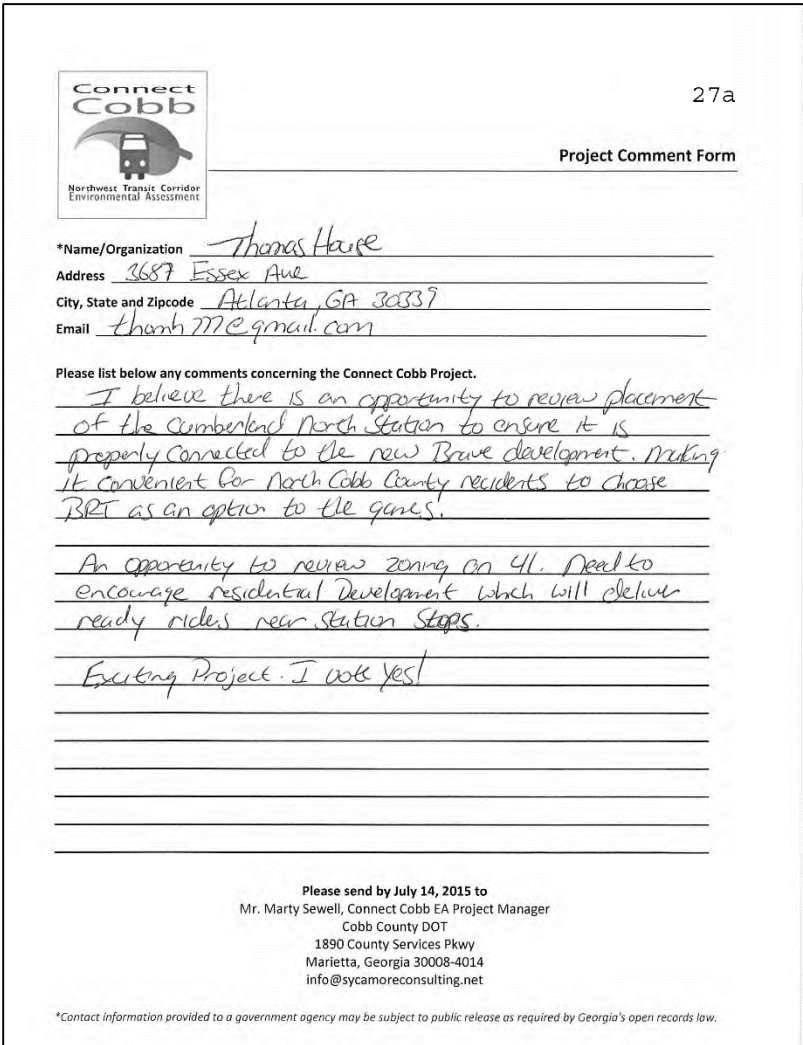 Connect
Cobb
Northwest Transit Corridor
Environmental Assessment
27a
Project Comment Form
*Name/Organization Thomas
Address 3687 Essex Ave
City, State and Zipcode Atlanta, GA 30339
Email @gmail.com
Please list below any comments concerning the Connect Cobb Project.
I believe there is an opportunity to review placement
of the Cumberland North Station to ensure it is
properly connected to the new Brave development. Making
it convenient for North Cobb County residents to choose
BRT as an option to the games!
An opportunity to review zoning on 41. Need to
encourage residential Development which will deliver
ready riders near station stops.
Exciting Project. I vote yes!
Please send by July 14, 2015 to
Mr. Marty Sewell, Connect Cobb EA Project Manager
Cobb County DOT
1890 County Services Pkwy
Marietta, Georgia 30008-4014
info@sycamoreconsulting.net
*Contact information provided to a government agency may be subject to public release as required by Georgia's open records law.